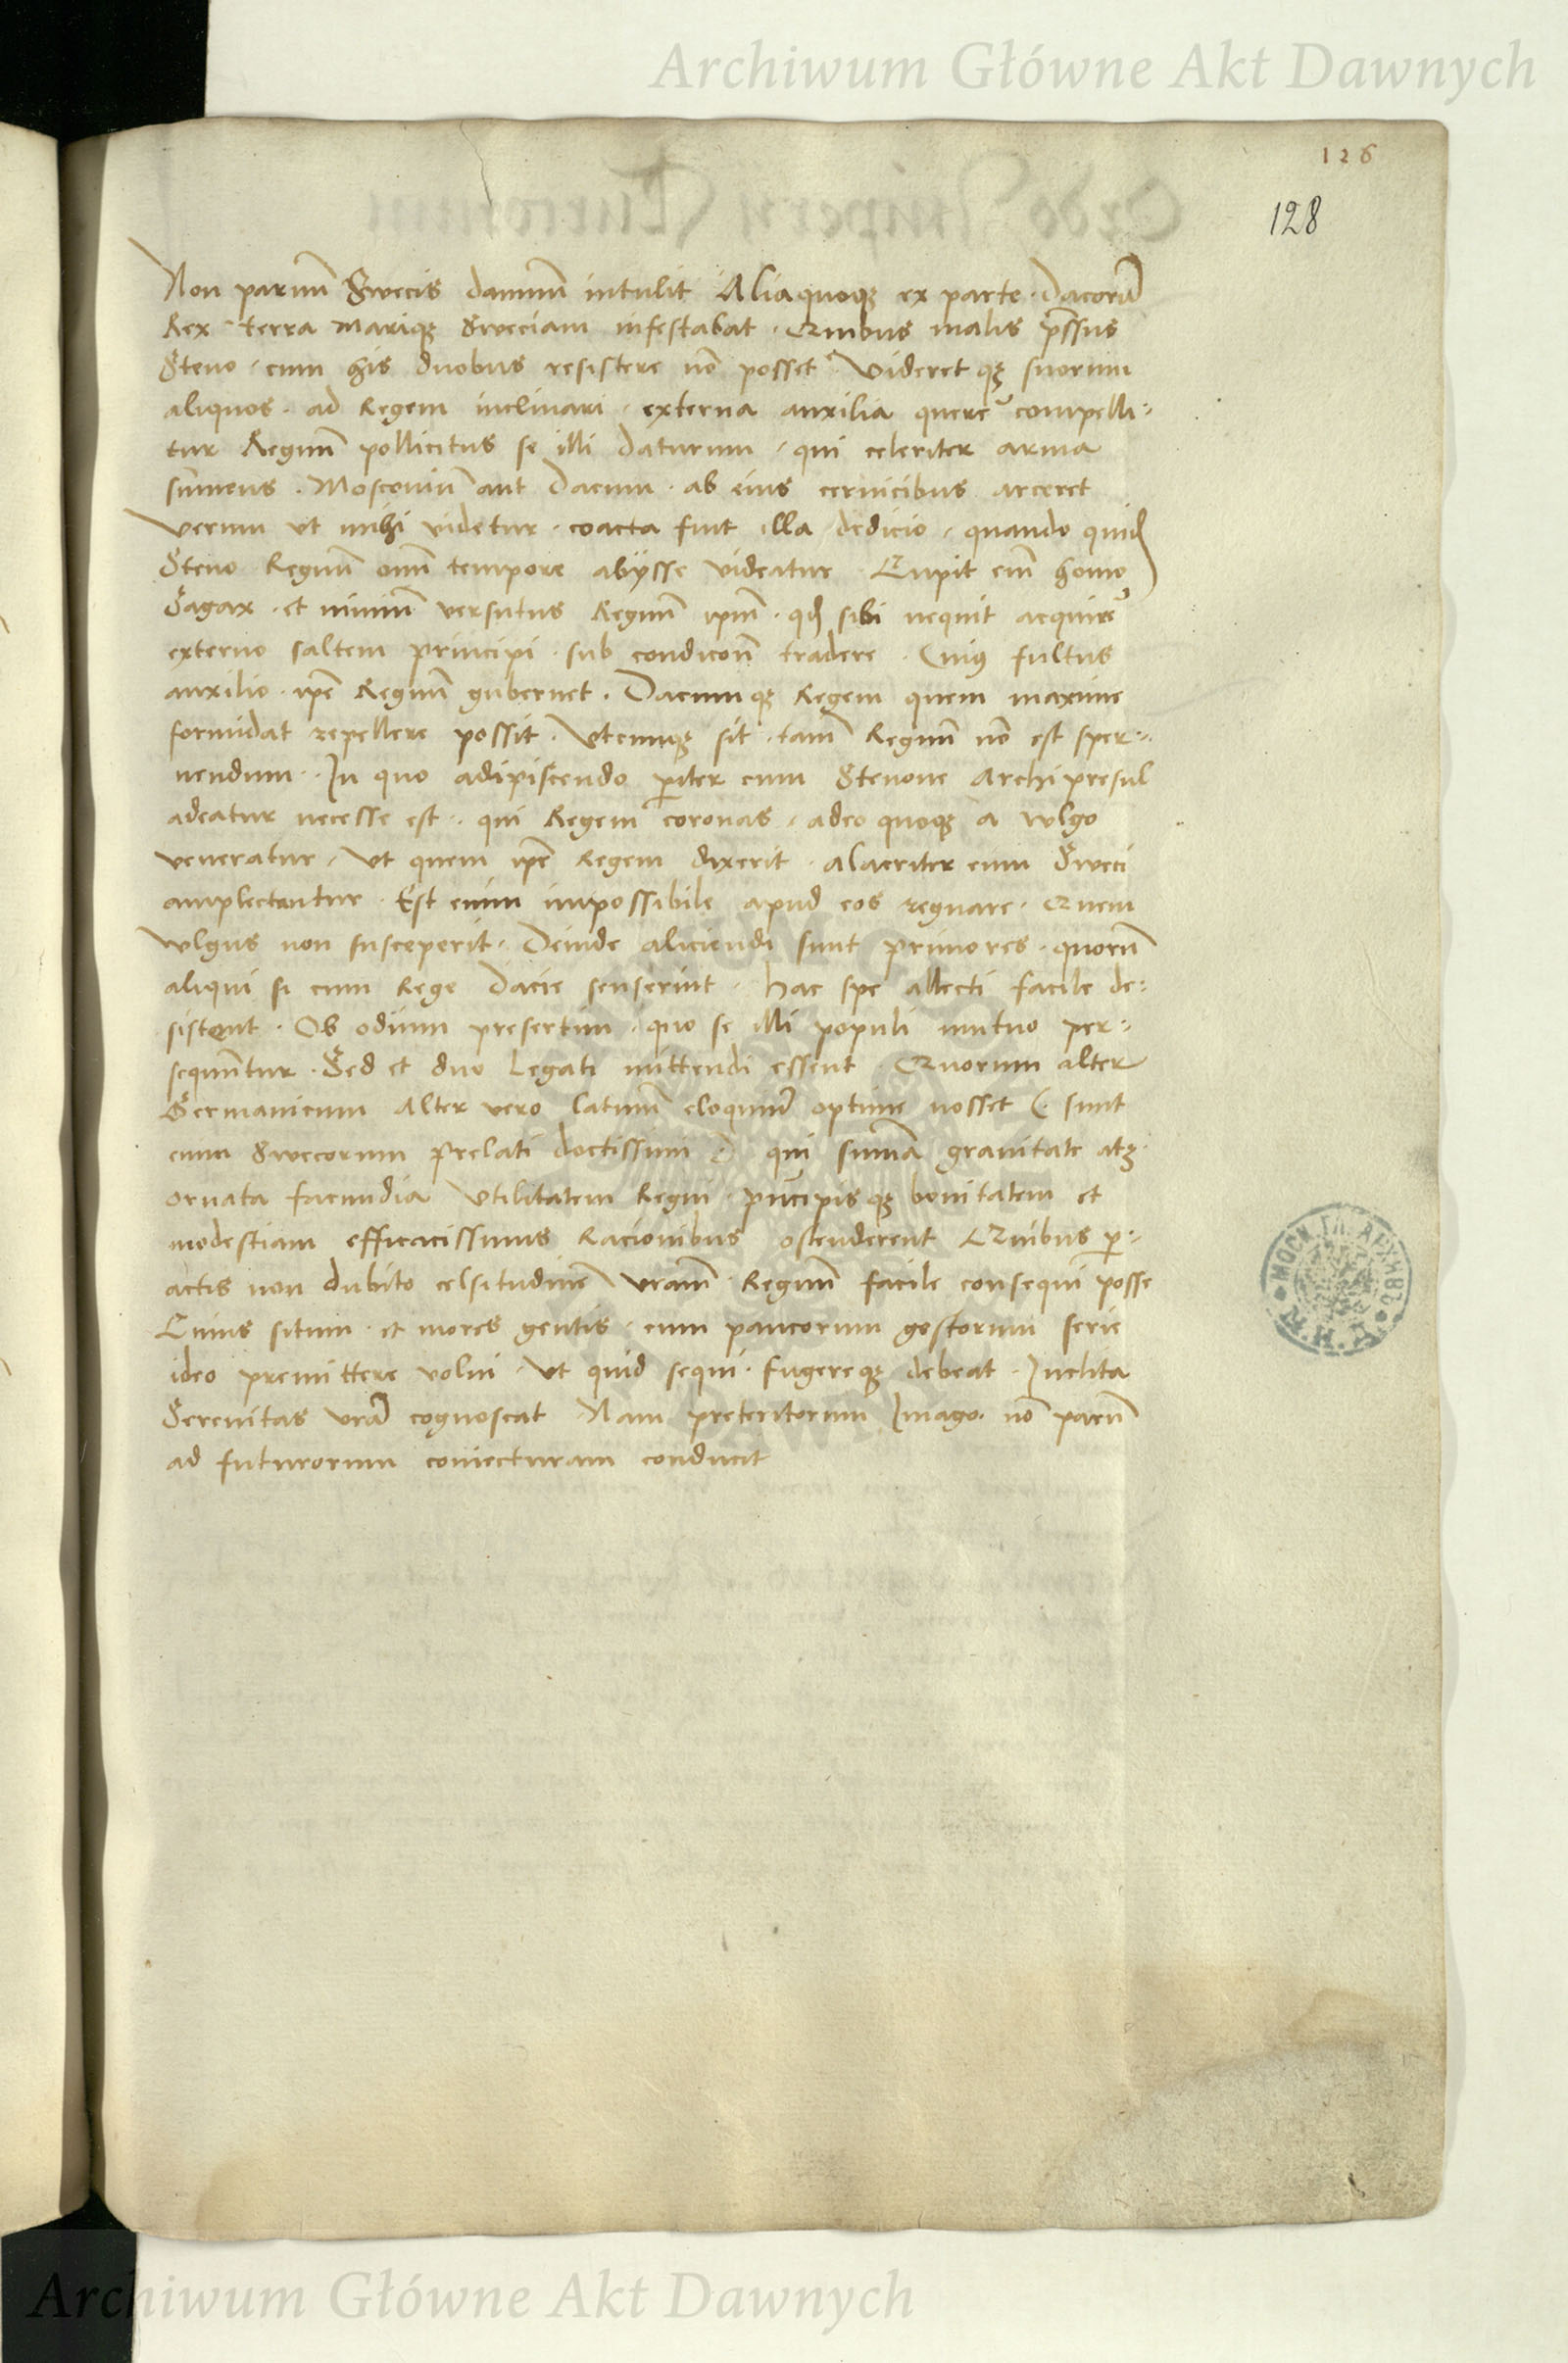 Archiwum Główne Akt Dawnych
126
128
Non paruū Swecis damnū intulit Aliaquoqꝫ ex parte · Dacorū
Rex terra mariqꝫ Sweciam infestabat · Quibus malis p̄ssus
Steno · cum his duobus resistere nō posset Videretqꝫ suorum
aliquos · ad Regem inclinari · externa auxilia querē compelli-
tur Regnū pollicitus se illi daturum · qui celeriter arma
sumens · Moscouiū aut Dacum · ab eius ceruicibus arceret
verum vt mihi videtur · coacta fuit illa dedicio · quando quid
Steno Regnū omī tempore abijsse videatur · Cupit em̄ homo
Sagax · et nimiū versutus Regnū ip̄m · qd sibi nequit acquirē
externo saltem principi · sub condicōn tradere · Cuiꝯ fultus
auxilio · ip̄e Regnū gubernet · Dacumqꝫ Regem quem maxime
formidat repellere possit · Vtcumqꝫ sit · tam̄ Regnū nō est sper-
nendum · In quo adipiscendo pariter cum Stenone Archipresul
adeatur necesse est · qui Regem coronas · adeo quoqꝫ a wlgo
veneratur · Vt quem ip̄e Regem dixerit · alacriter eum Sweci
amplectantur · Est enim impossibile apud eos regnare · Quem
wlgus non susceperit · Deinde aliciendi sunt primores · quorū
aliqui si cum Rege Dacie senserint · hac spe allecti facile de-
sistent · Ob odium presertim · quo se illi populi mutuo per-
sequūtur · Sed et duo Legati mittendi essent · Quorum alter
Germanicum Alter vero latinū eloquiū optime nosset (· sunt
enim Swecorum prelati doctissimi ·) qui summa grauitate atqꝫ
ornata facundia vtilitatem Regni · prīcipisqꝫ bonitatem et
modestiam efficacissimis Racionibus ostenderent Quibus p-
actis non dubito celsitudinē vram̄ Regnū facile consequi posse
Cuius situm · et mores gentis · cum paucorum gestorum serie
ideo premittere volui · Vt quid sequi · fugereqꝫ debeat · Inclita
Serenitas vrā cognoscat Nam preteritorum Imago · nō parū
ad futurorum coniecturam conducit
Archiwum Główne Akt Dawnych